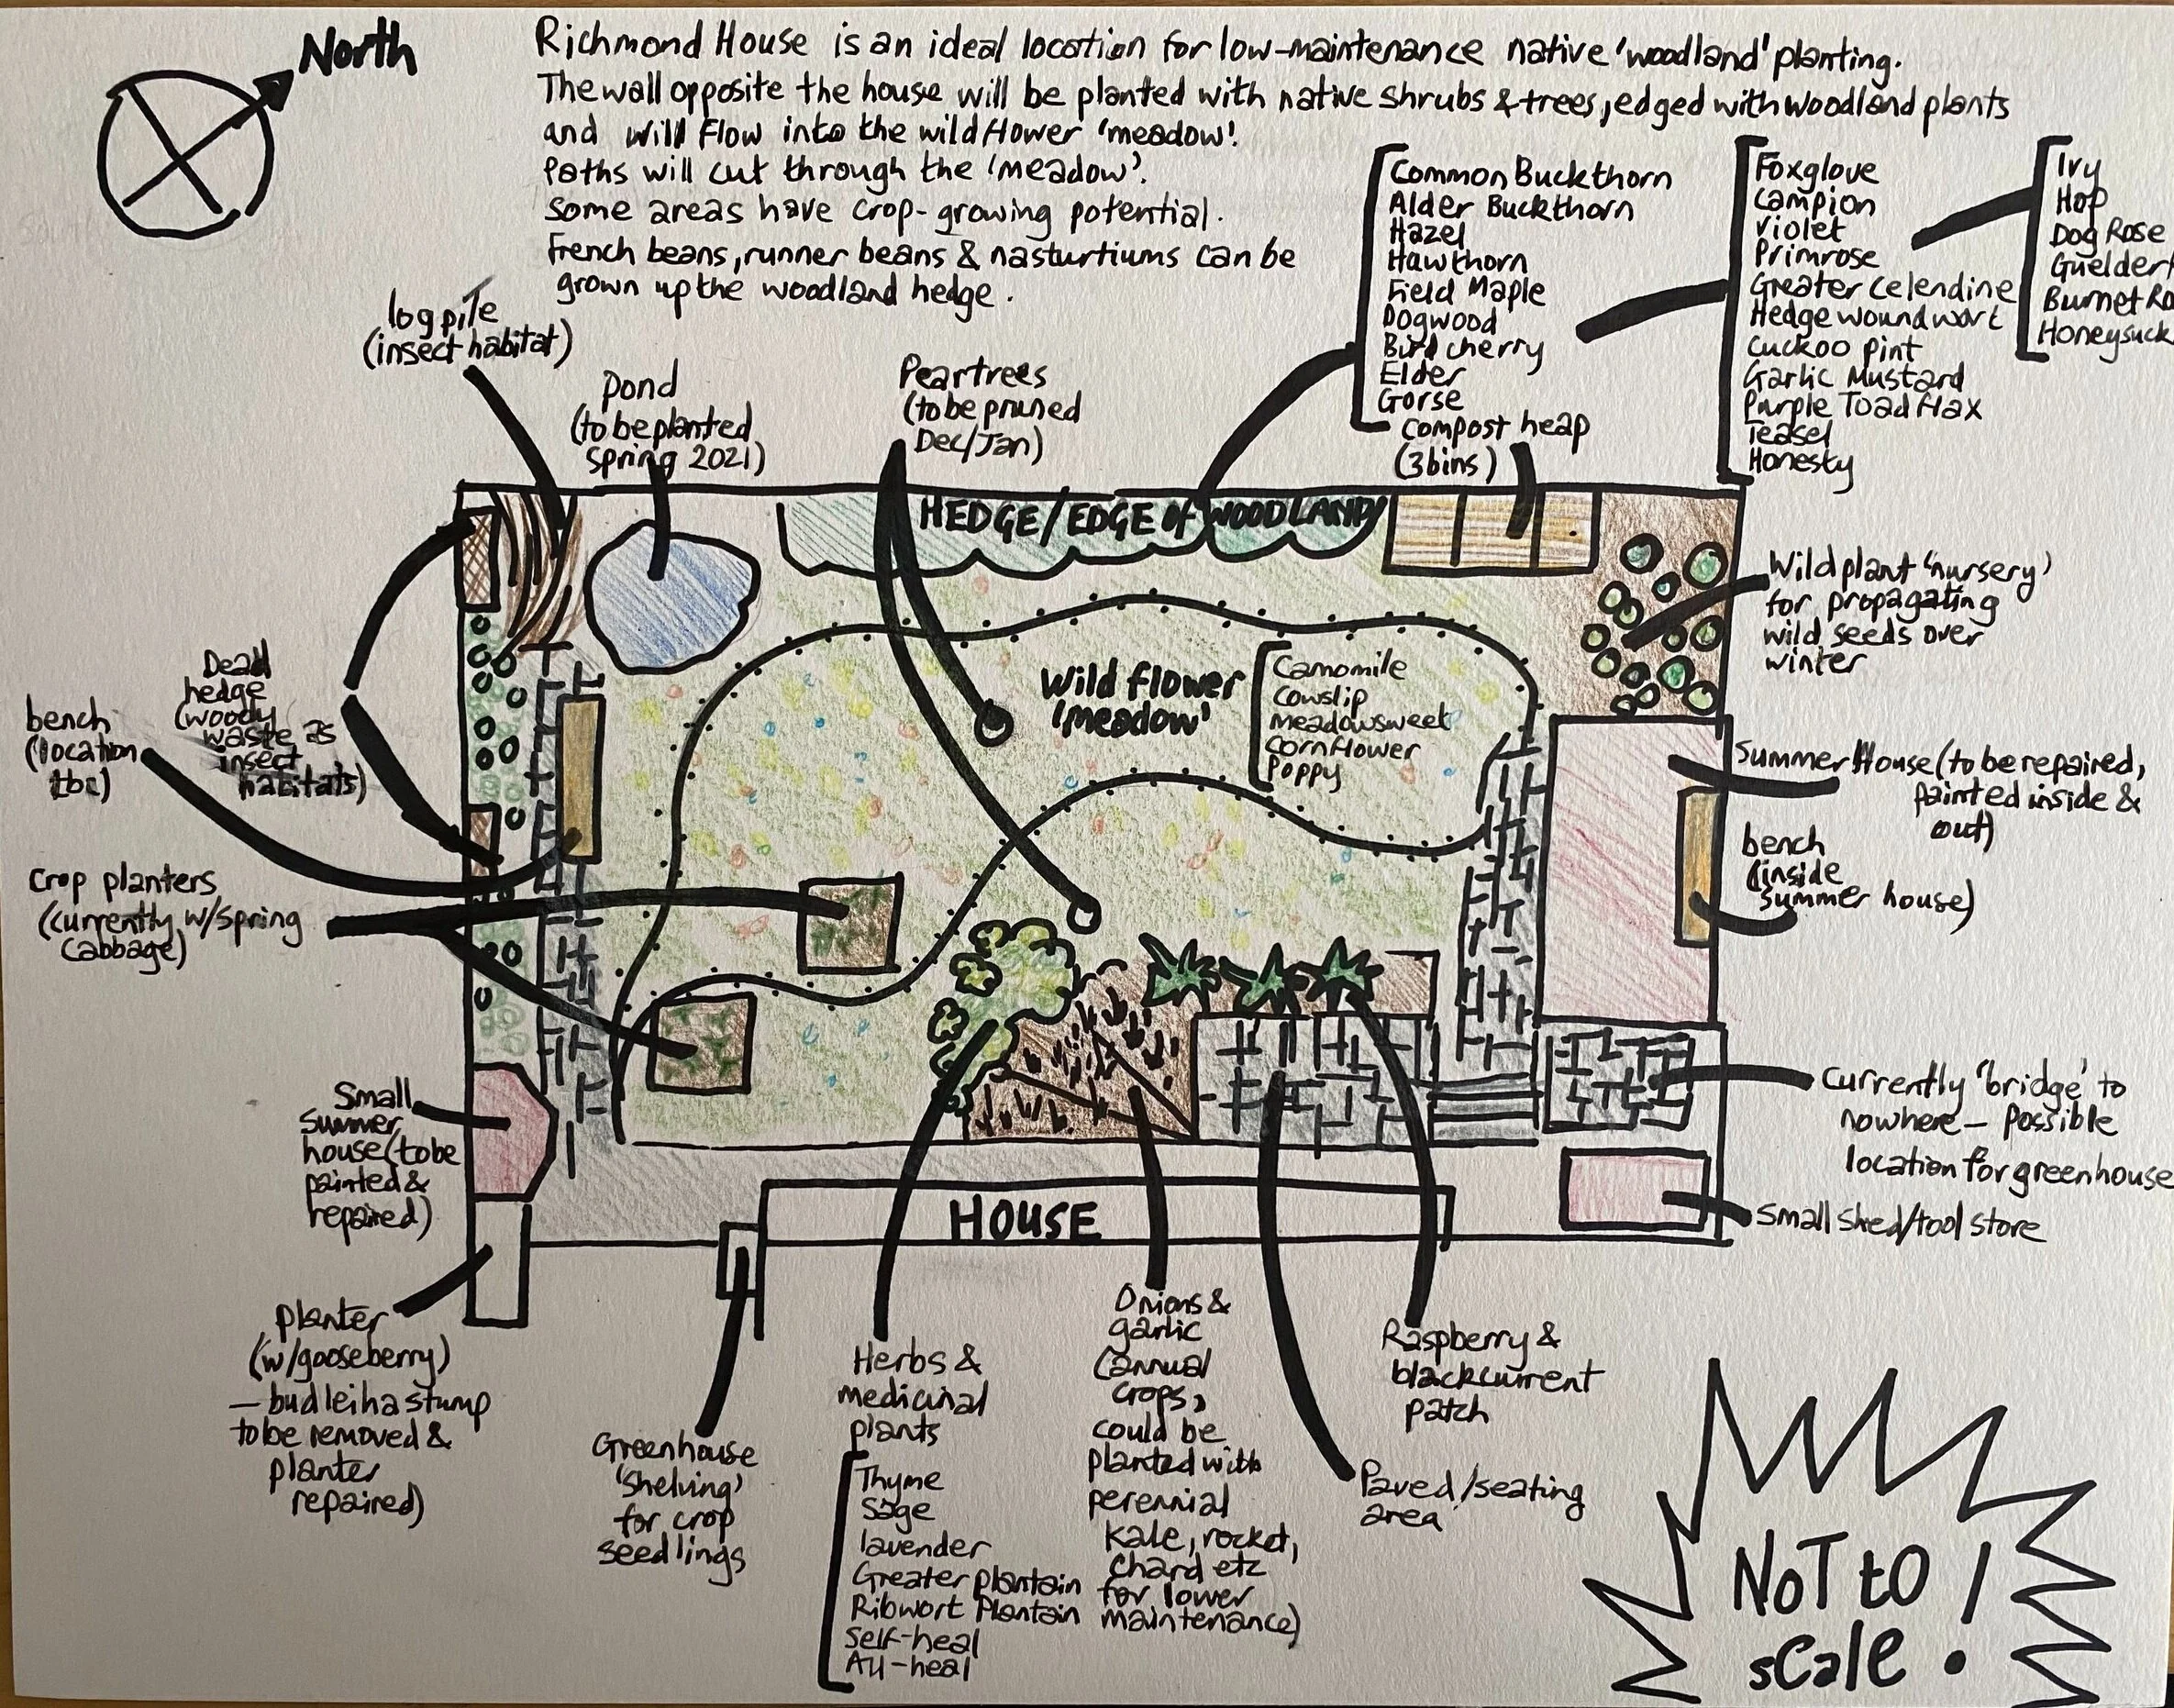 North
Richmond House is an ideal location for low-maintenance native 'woodland' planting.
The wall opposite the house will be planted with native shrubs & trees, edged with woodland plants
and will flow into the wildflower 'meadow'.
Paths will cut through the 'meadow'.
Some areas have crop-growing potential.
French beans, runner beans & nasturtiums can be
grown up the woodland hedge.
Common Buckthorn
Alder Buckthorn
Hazel
Hawthorn
Field Maple
Dogwood
Bird cherry
Elder
Gorse
Foxglove
Campion
Violet
Primrose
Greater Celendine
Hedge woundwort
Cuckoo pint
Garlic Mustard
Purple Toad flax
Teasel
Honesty
Ivy
Hop
Dog Rose
Guelder
Burnet Ro
Honeysuck
log pile
(insect habitat)
Pond
(to be planted
Spring 2021)
Pear trees
(to be pruned
Dec/Jan)
compost heap
(3 bins)
HEDGE/EDGE of WOODLAND
Wild plant 'nursery'
for propagating
wild seeds over
winter
Wild flower
'meadow'
Camomile
Cowslip
Meadowsweet
Cornflower
Poppy
Dead
hedge
(woody
waste as
insect
habitats)
bench
(location
tbc)
Crop planters
(currently w/spring
cabbage)
Summer House (to be repaired,
painted inside &
out)
bench
(inside
summer house)
Small
summer
house (to be
painted &
repaired)
Currently 'bridge' to
nowhere - possible
location for greenhouse
Small shed/tool store
HOUSE
planter
(w/gooseberry)
- budleiha stump
to be removed &
planter
repaired)
Greenhouse
'shelving'
for crop
seedlings
Herbs &
medicinal
plants
Thyme
Sage
lavender
Greater plantain
Ribwort Plantain
Self-heal
All-heal
Onions &
garlic
(annual
crops,
could be
planted with
perennial
kale, rocket,
chard etc
for lower
maintenance)
Raspberry &
blackcurrent
patch
Paved/seating
area
NOT to
scale!